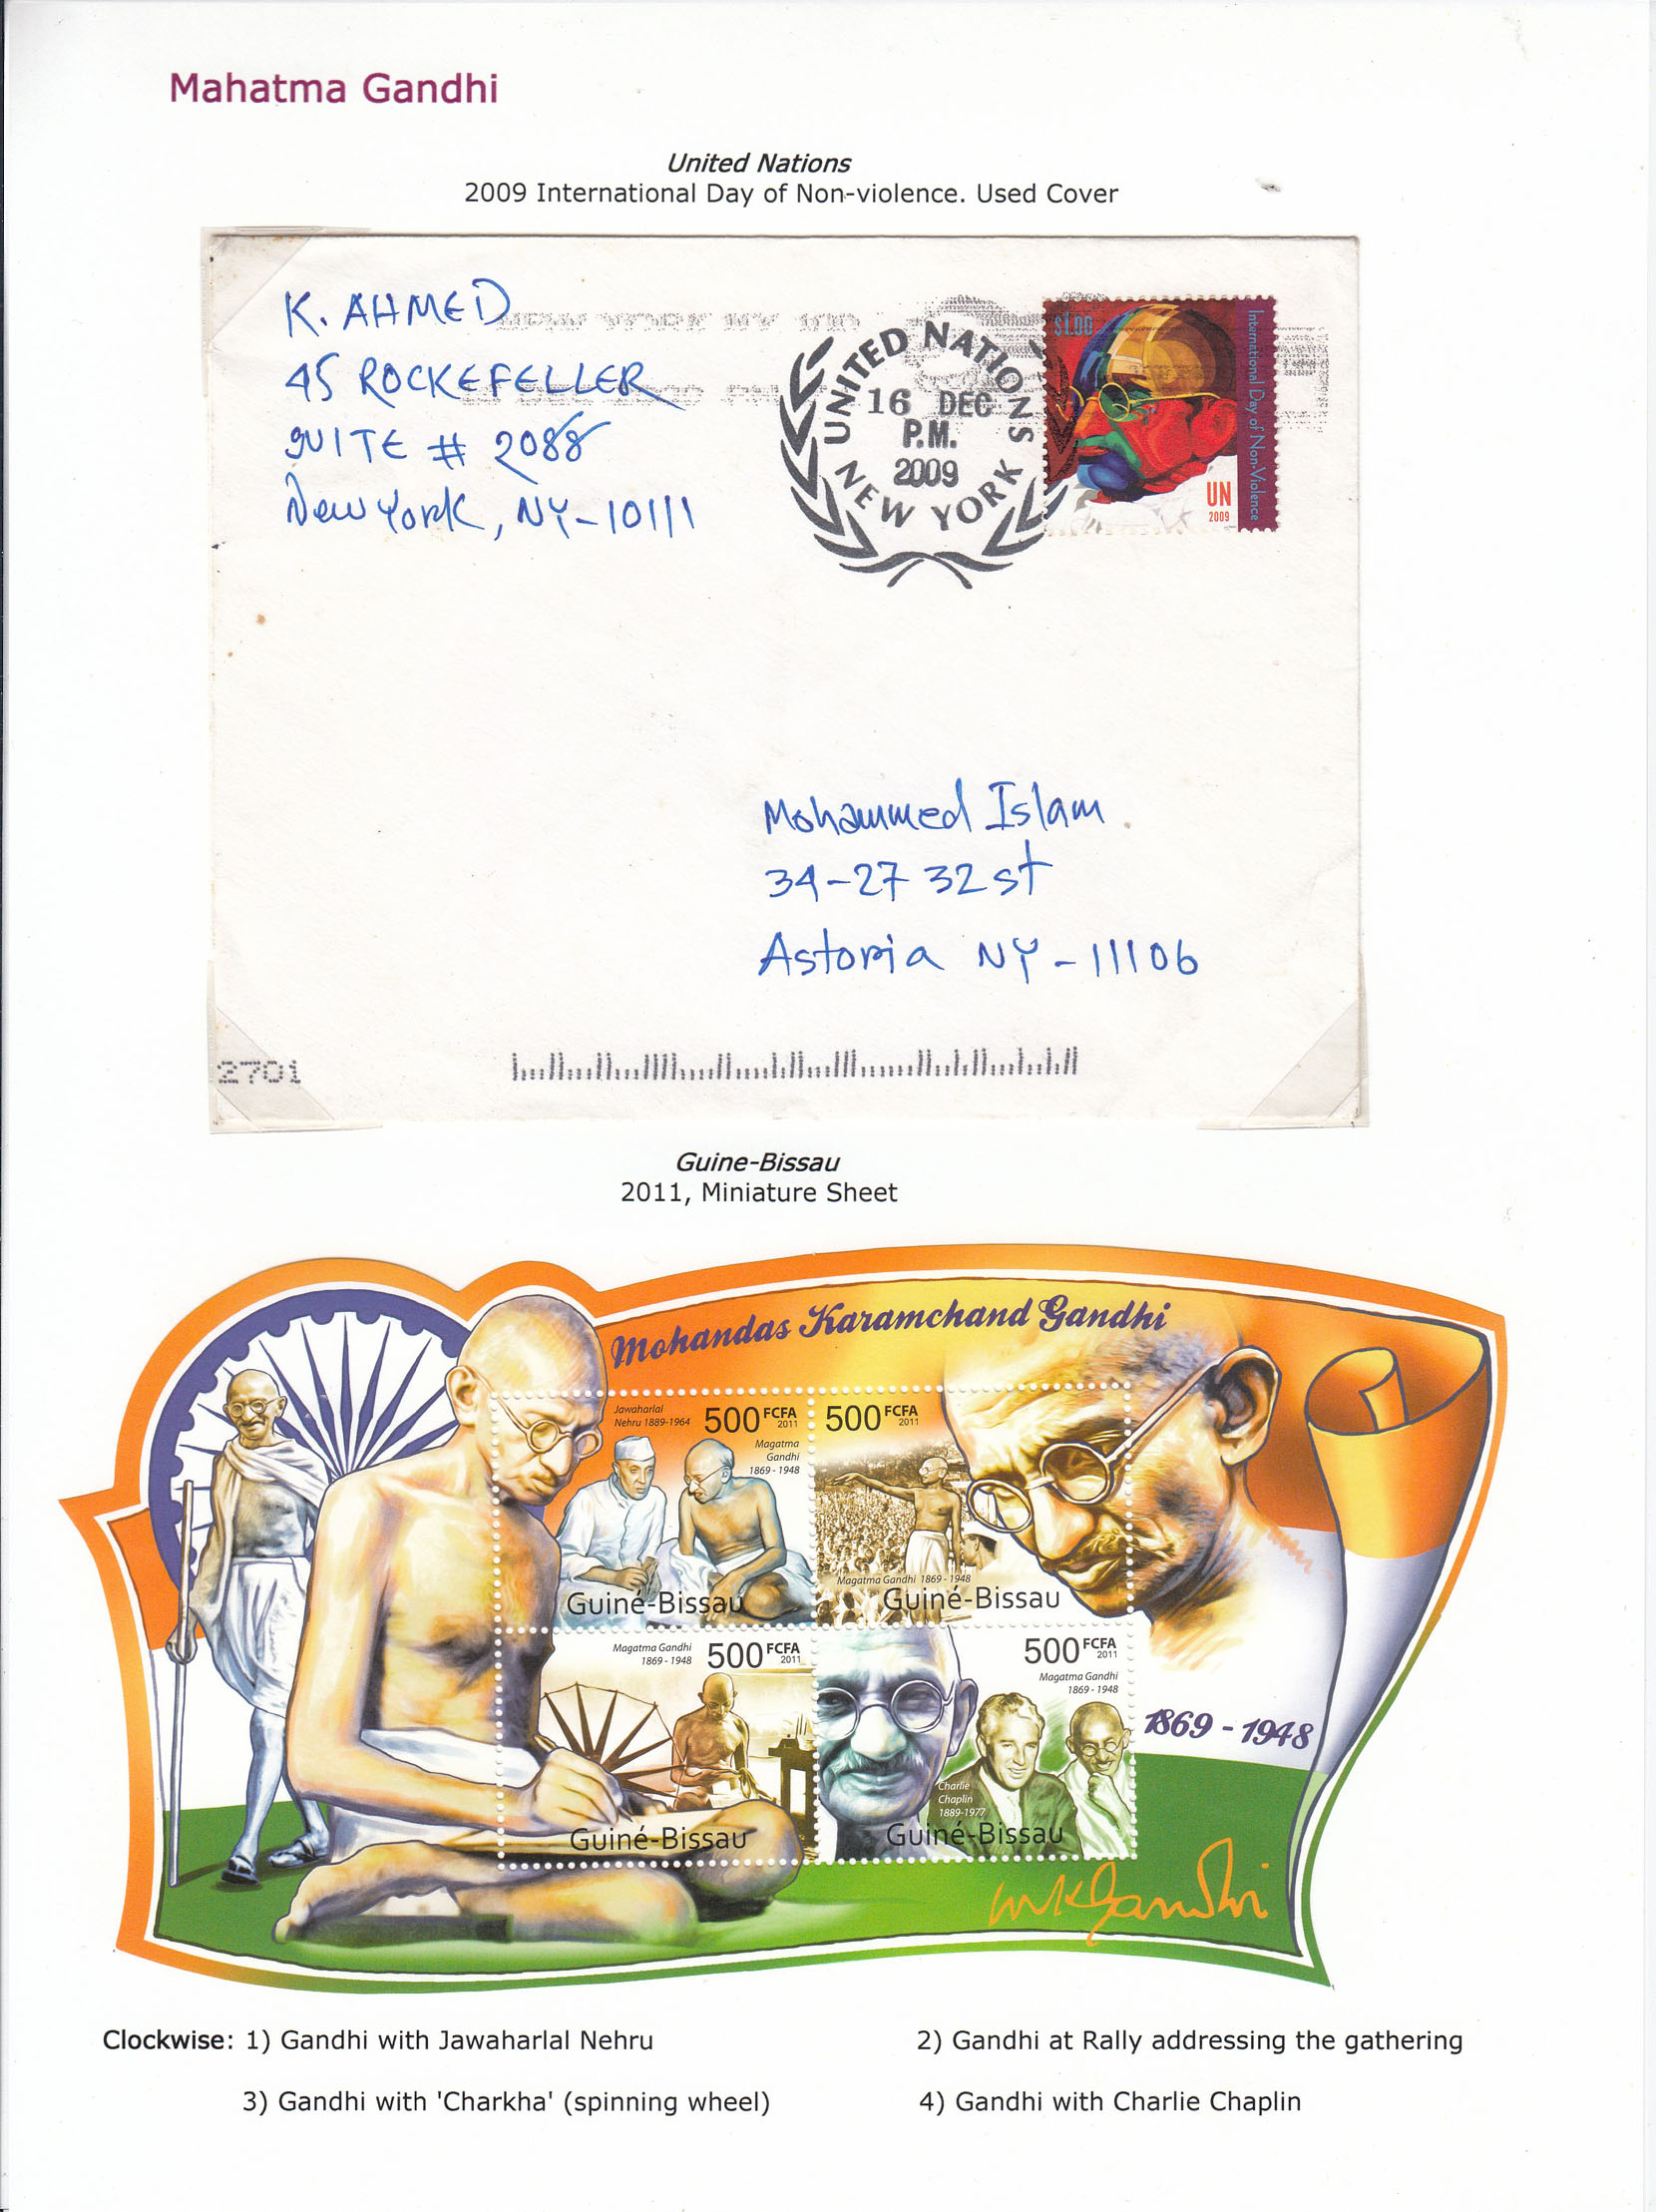 Mahatma Gandhi
United Nations
2009 International Day of Non-violence. Used Cover
K. AHMED
45 ROCKEFELLER
SUITE # 2088
New York, NY-10111
UNITED NATIONS
16 DEC
P.M.
2009
NEW YORK
$1.00
International Day of Non-Violence
UN
2009
Mohammed Islam
34-27 32 st
Astoria NY-11106
2701
Guine-Bissau
2011, Miniature Sheet
Mohandas Karamchand Gandhi
Jawaharlal
Nehru 1889-1964
500 FCFA
2011
Magatma
Gandhi
1869 - 1948
Guiné-Bissau
500 FCFA
2011
Magatma Gandhi 1869 - 1948
Guiné-Bissau
Magatma Gandhi
1869 - 1948
500 FCFA
2011
Guiné-Bissau
500 FCFA
2011
Magatma Gandhi
1869 - 1948
Charlie
Chaplin
1889-1977
Guiné-Bissau
1869 - 1948
mkGandhi
Clockwise: 1) Gandhi with Jawaharlal Nehru
2) Gandhi at Rally addressing the gathering
3) Gandhi with 'Charkha' (spinning wheel)
4) Gandhi with Charlie Chaplin